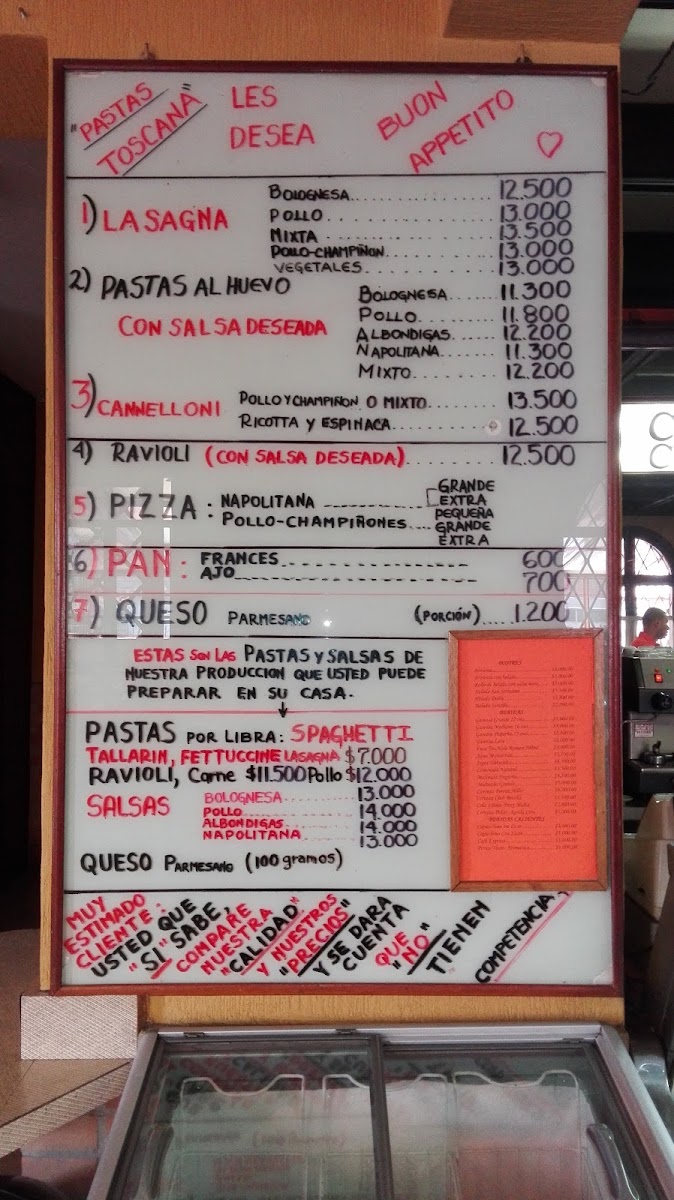 "PASTAS TOSCANA" LES DESEA BUON APPETITO ♡
1) LASAGNA
BOLOGNESA.................... 12.500
POLLO.................... 13.000
MIXTA.................... 13.500
POLLO-CHAMPIÑON.................... 13.000
VEGETALES.................... 13.000
2) PASTAS AL HUEVO
CON SALSA DESEADA
BOLOGNESA....... 11.300
POLLO....... 11.800
ALBONDIGAS....... 12.200
NAPOLITANA....... 11.300
MIXTO....... 12.200
3) CANNELLONI
POLLO Y CHAMPIÑON O MIXTO........ 13.500
RICOTTA Y ESPINACA........ 12.500
4) RAVIOLI (CON SALSA DESEADA)........ 12.500
5) PIZZA: NAPOLITANA -------------- GRANDE
EXTRA
POLLO-CHAMPIÑONES.... PEQUEÑA
GRANDE
EXTRA
6) PAN: FRANCES.................... 600
AJO.................... 700
7) QUESO PARMESANO (PORCIÓN).... 1.200
ESTAS SON LAS PASTAS Y SALSAS DE
NUESTRA PRODUCCION QUE USTED PUEDE
PREPARAR EN SU CASA.
PASTAS POR LIBRA: SPAGHETTI
TALLARIN, FETTUCCINE LASAGNA $7.000
RAVIOLI, Carne $11.500 Pollo $12.000
SALSAS
BOLOGNESA............ 13.000
POLLO............ 14.000
ALBONDIGAS............ 14.000
NAPOLITANA............ 13.000
QUESO PARMESANO (100 gramos)
MUY ESTIMADO CLIENTE: USTED QUE "SI" SABE, COMPARE NUESTRA "CALIDAD" Y NUESTROS "PRECIOS" Y SE DARA CUENTA QUE "NO" TIENEN COMPETENCIA